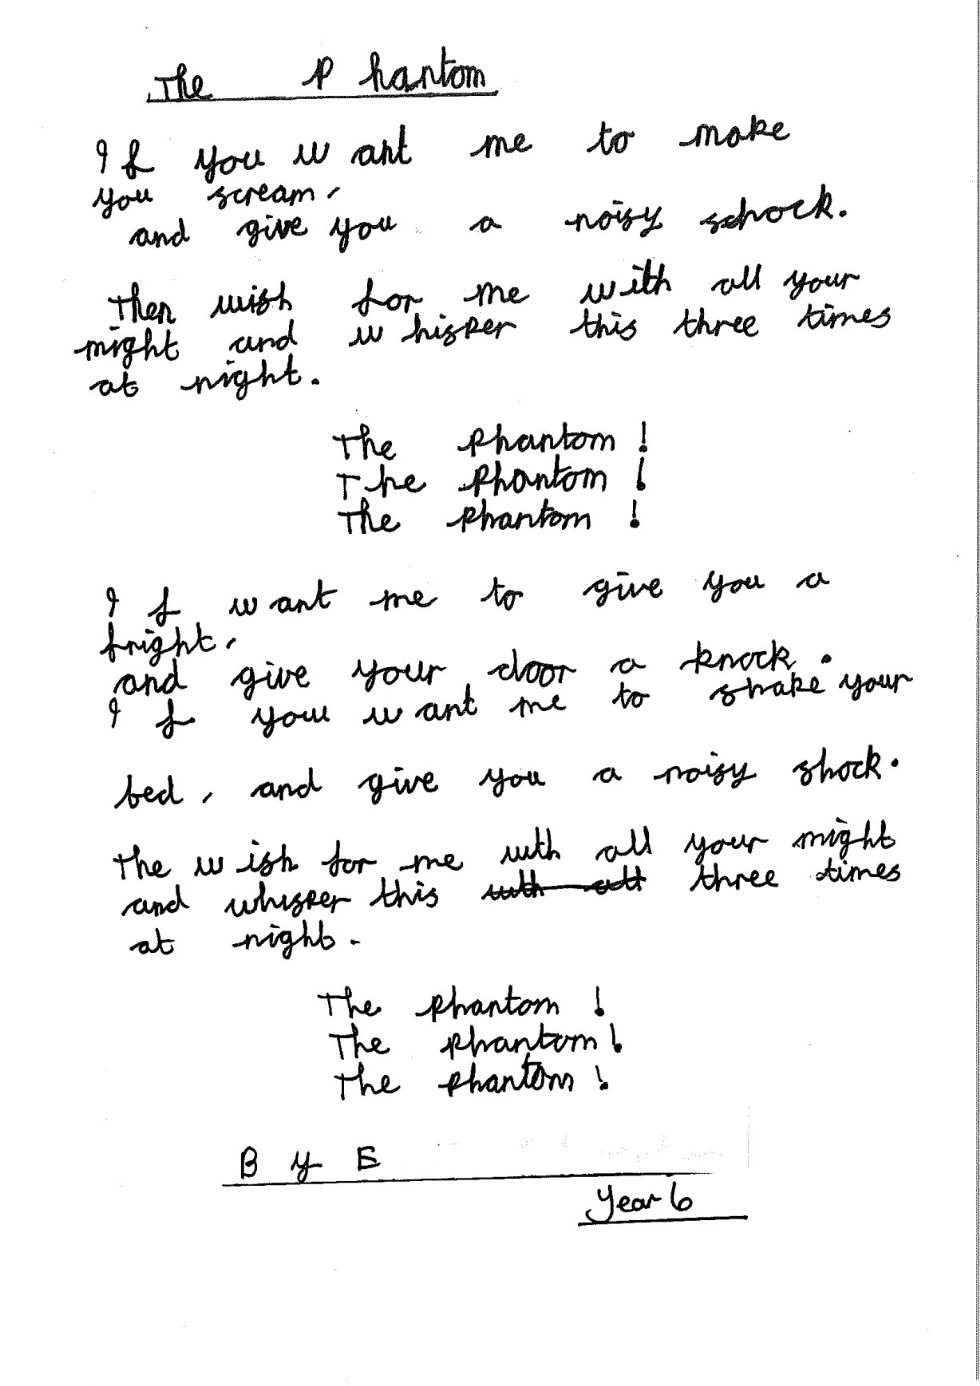 The Phantom
If you want me to make
you scream,
and give you a noisy schock.
Then wish for me with all your
might and whisper this three times
at night.
The phantom!
The phantom!
The phantom!
If want me to give you a
fright,
and give your door a knock.
If you want me to shake your
bed, and give you a noisy shock.
The wish for me with all your might
and whisper this with all three times
at night.
The phantom!
The phantom!
The phantom!
By E
Year 6